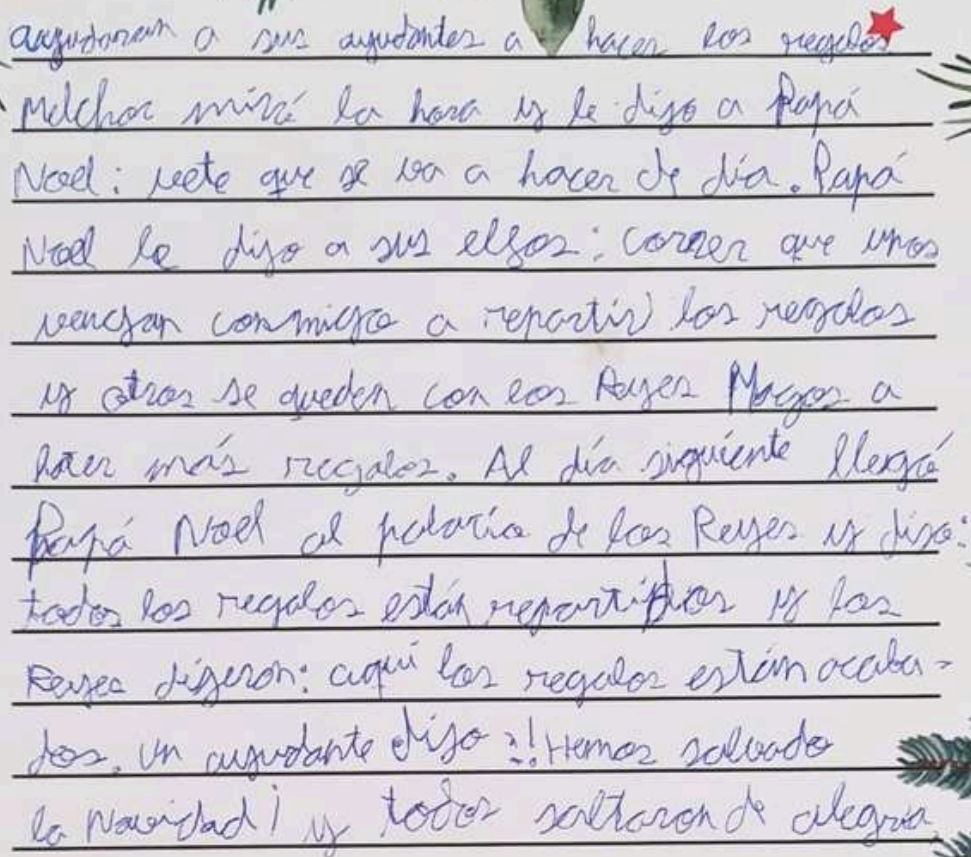 ayudaran a sus ayudantes a hacer los regalos
Melchor miró la hora y le dijo a Papá
Noel: vete que se va a hacer de día. Papá
Noel le dijo a sus elfos: correr que unos
vengan conmigo a repartir los regalos
y otros se queden con los Reyes Magos a
hacer más regalos. Al día siguiente llegó
Papá Noel al palacio de los Reyes y dijo:
todos los regalos están repartidos y los
Reyes dijeron: aquí los regalos están acaba-
dos. un ayudante dijo: !Hemos salvado
la Navidad! y todos saltaron de alegria